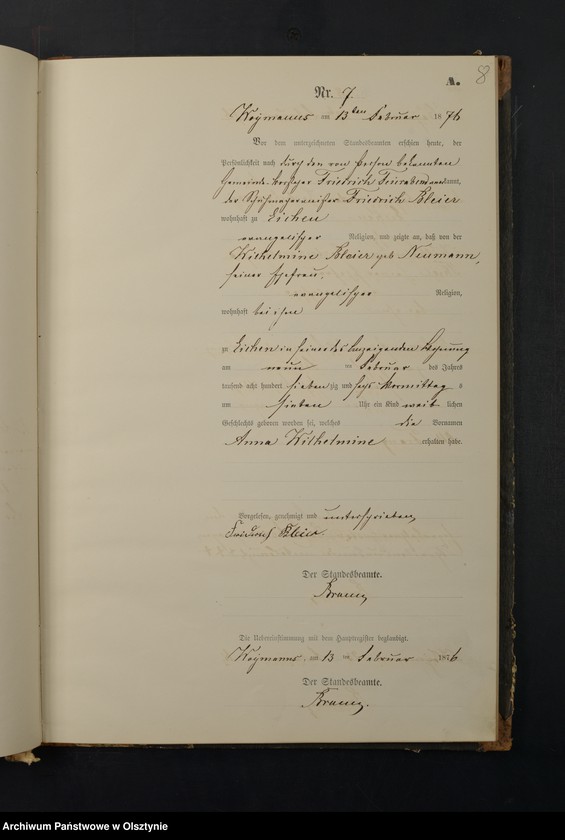 8
A.
Nr. 7.
Koymanns am 13ten Februar 1876
Vor dem unterzeichneten Standesbeamten erschien heute, der
Persönlichkeit nach durch den von Person bekannten
Gemeinde-Vorsteher Friedrich Feierabend anerkannt,
der Schuhmachermeister Friedrich Bleier
wohnhaft zu Eichen
evangelischer Religion, und zeigte an, daß von der
Wilhelmine Bleier geb Neumann,
seiner Ehefrau,
evangelischer Religion,
wohnhaft bei ihm
zu Eichen in seiner des Anzeigenden Wohnung
am neun ten Februar des Jahres
tausend acht hundert sieben zig und sechs Vormittag s
um sieben Uhr ein Kind weib lichen
Geschlechts geboren worden sei, welches die Vornamen
Anna Wilhelmine erhalten habe.
Vorgelesen, genehmigt und unterschrieben
Friedrich Bleier.
Der Standesbeamte.
Die Uebereinstimmung mit dem Hauptregister beglaubigt.
Koymanns, am 13 ten Februar 1876
Der Standesbeamte.
Archiwum Państwowe w Olsztynie